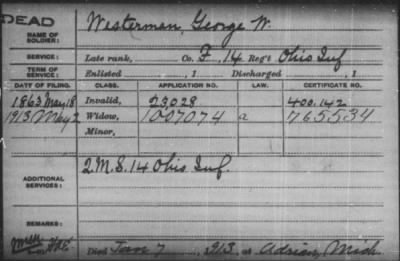 DEAD
NAME OF SOLDIER: Westerman, George W.
SERVICE: Late rank, Co. F, 14 Reg't Ohio Inf
TERM OF SERVICE: Enlisted , 1 Discharged , 1
DATE OF FILING. CLASS. APPLICATION NO. LAW. CERTIFICATE NO.
1863 May 18 Invalid, 23028 400.142
1913 May 2 Widow, 1007074 a 765534
Minor,
ADDITIONAL SERVICES: 2. M. S. 14 Ohio Inf.
REMARKS:
Died Jan 7, 1913, at Adrian, Mich.